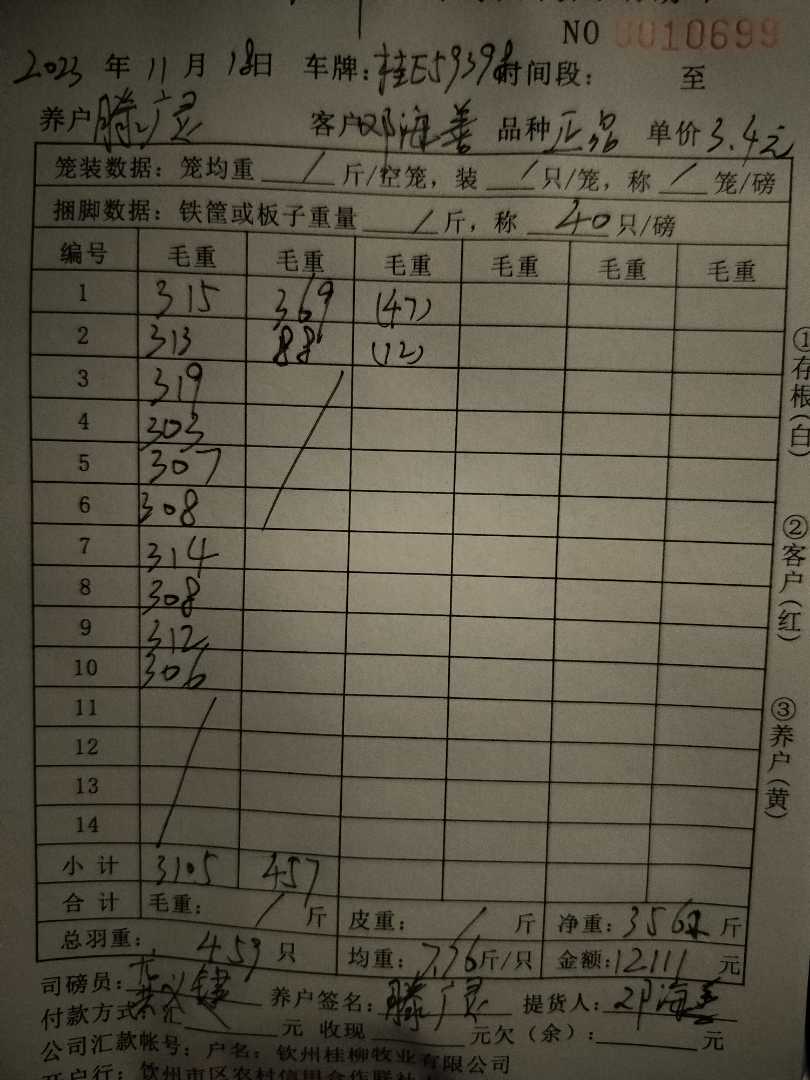 NO 0010699
2023 年 11 月 18 日 车牌：桂E59398 时间段： 至
养户 滕广灵 客户 邓海善 品种 正品 单价 3.4元
笼装数据：笼均重 / 斤/空笼，装 / 只/笼，称 / 笼/磅
捆脚数据：铁筐或板子重量 / 斤，称 40 只/磅
编号 毛重 毛重 毛重 毛重 毛重 毛重
1 315 369 (47)
2 313 88 (12)
3 319
4 303
5 307
6 308
7 314
8 308
9 312
10 306
11
12
13
14
小计 3105 457
合计 毛重： / 斤 皮重： / 斤 净重：3562 斤
总羽重： 459 只 均重：7.76 斤/只 金额：12111 元
司磅员： 养户签名：滕广灵 提货人：邓海善
付款方式： 汇 元 收现 元欠（余）： 元
公司汇款帐号：户名：钦州桂柳牧业有限公司
开户行：钦州市区农村信用合作联社
①存根(白)
②客户(红)
③养户(黄)